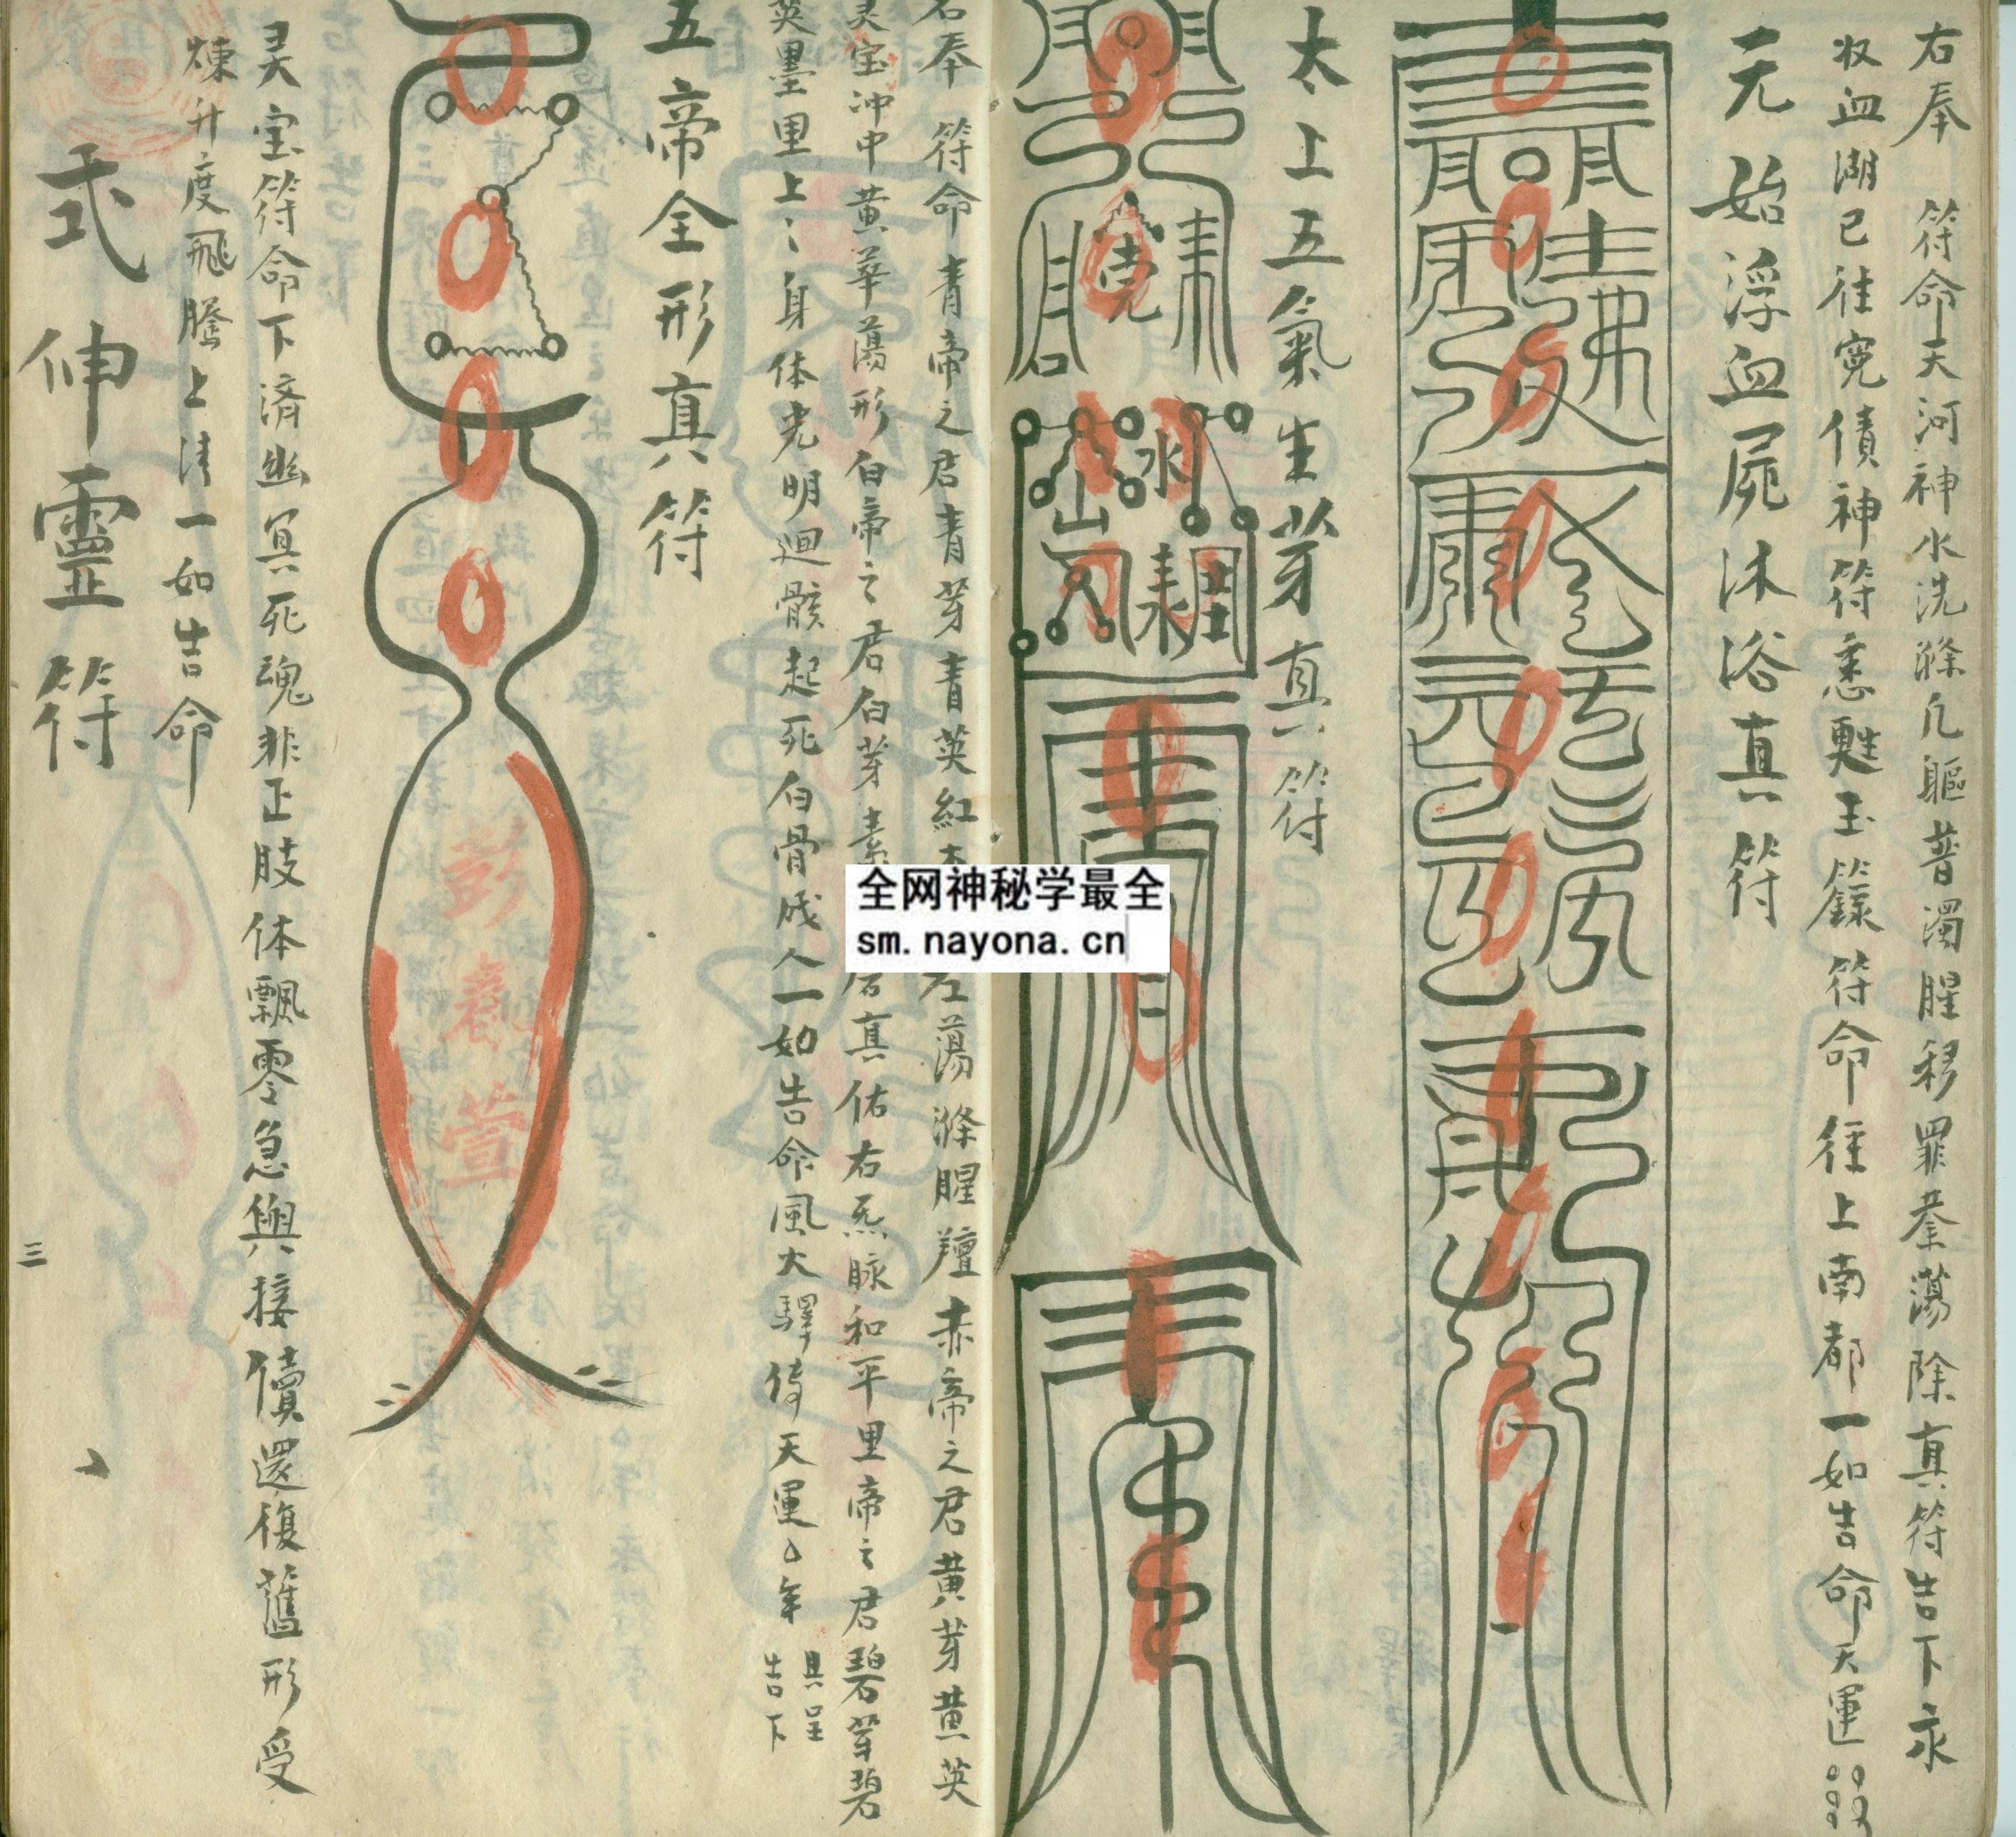 右奉　符命天河神水洗滌凡軀昔濁腥移罪蠢蕩除真符告下永
收血湖已往寃債神符悉甦玉籙符命徑上南都一如吉命天運
元始浮血屍沐浴真符
太上五氣生芽真符
水
山
右奉　符命青帝之君青芽青英紅
左蕩滌腥羶赤帝之君黄芽黄英
灵宝冲中黄華蕩形白帝之君白芽素
君真佑右炁脉和平里帝之君碧芽碧
英墨里上〻身体光明迴骸起死白骨成人一如告命風火驛傳天運厶年
具呈
吉下
五帝全形真符
彭
萱
灵宝符命下済幽冥死魂非正肢体飄零急與接續還復舊形受
煉升度飛騰上清一如吉命
弍伸靈符
三
全网神秘学最全
sm.nayona.cn